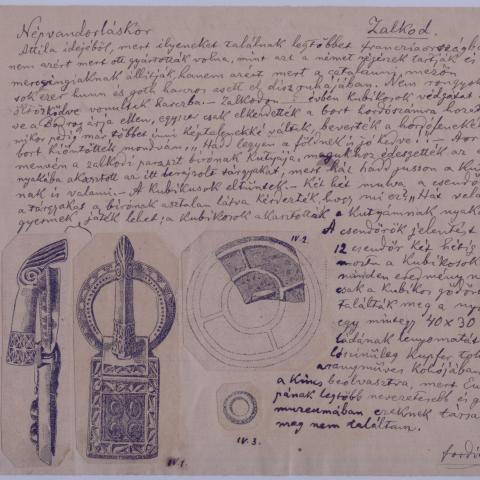 Népvandorláskor Zalkod.
Attila idejéből, mert ilyeneket találnak legtöbbet franciaországb
nem azért mert ott gyártották volna, mint azt a német régészek tartják és
merovingiaknak állitják, hanem azért mert a catalaunumi mezőn
sok ezer hunn és goth harcos esett el díszruhájában. Nem rongyos
öltözködve vonultak harcba. - Zalkodon évben Kubikosok védgátat
ve a Bodrog árja ellen, egyszer csak elkérdették a bort hordószámra hozat
nikor pedig már többet inni képtelenekké váltak, beverték a hordófenekek
bort kiöntötték mondván: „Hadd legyen a földnek is jó kedve!.. - Aor
menvén a zalkodi paraszt bírónak Kutyája, magukhoz édesgették az e
nyakába akasztott az itt lerajzolt tárgyakat, mert hát hadd jusson a Ku
nak is valami. - A Kubikusok eltüntek. - Két hét mulva a csendőr
a tárgyakat a bírónak asztalán látva kérdezték, hogy mi ez? „Hát vala
gyermek játék lehet, a Kubikosok akasztották a Kutyámnak nyak
A csendőrök jelentést
12 csendőr Két hétig
a Kubikosok
minden eredmény n
csak a Kubikos gödör
találták meg a ny
egy mintegy 40 x 30
ládának lenyomatát
lószinűleg Kupfer
aranyműves Kohójában
a Kincs beolvasztva, mert Eu
pának legtöbb nevezetesebb és g
muzeumában ezeknek társa
meg nem találtam.
IV.1.
IV.2.
IV.3.